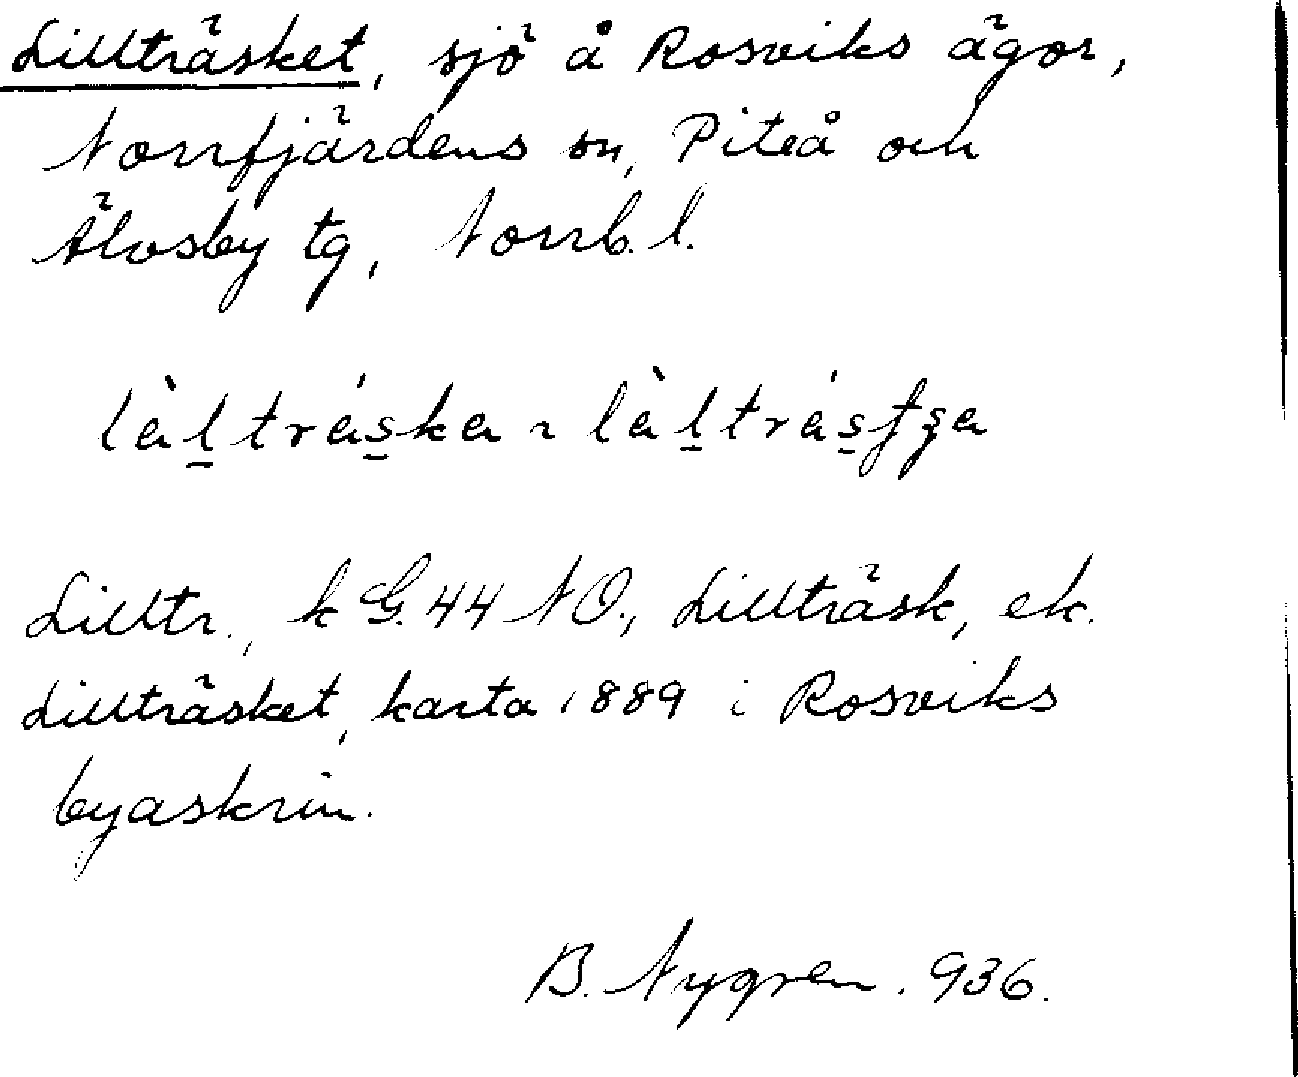 Lillträsket, sjö å Rosviks ägor,
Norrfjärdens sn, Piteå och
Älvsby tg, Norrb. l.
làl̲trás̲ka ~ làl̲trás̲fʂa
Lilltr., k G. 44 NO., Lillträsk, ek.
Lillträsket, karta 1889 i Rosviks
byaskrin.
B. Nygren. 936.